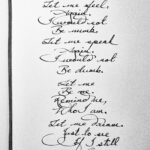 Let me feel,
Again.
I would not
Be numb.
Let me speak
Again.
I would not
Be dumb.
Let me
Be me.
Remind me,
Who I am.
Let me dream,
Just to see
If I still